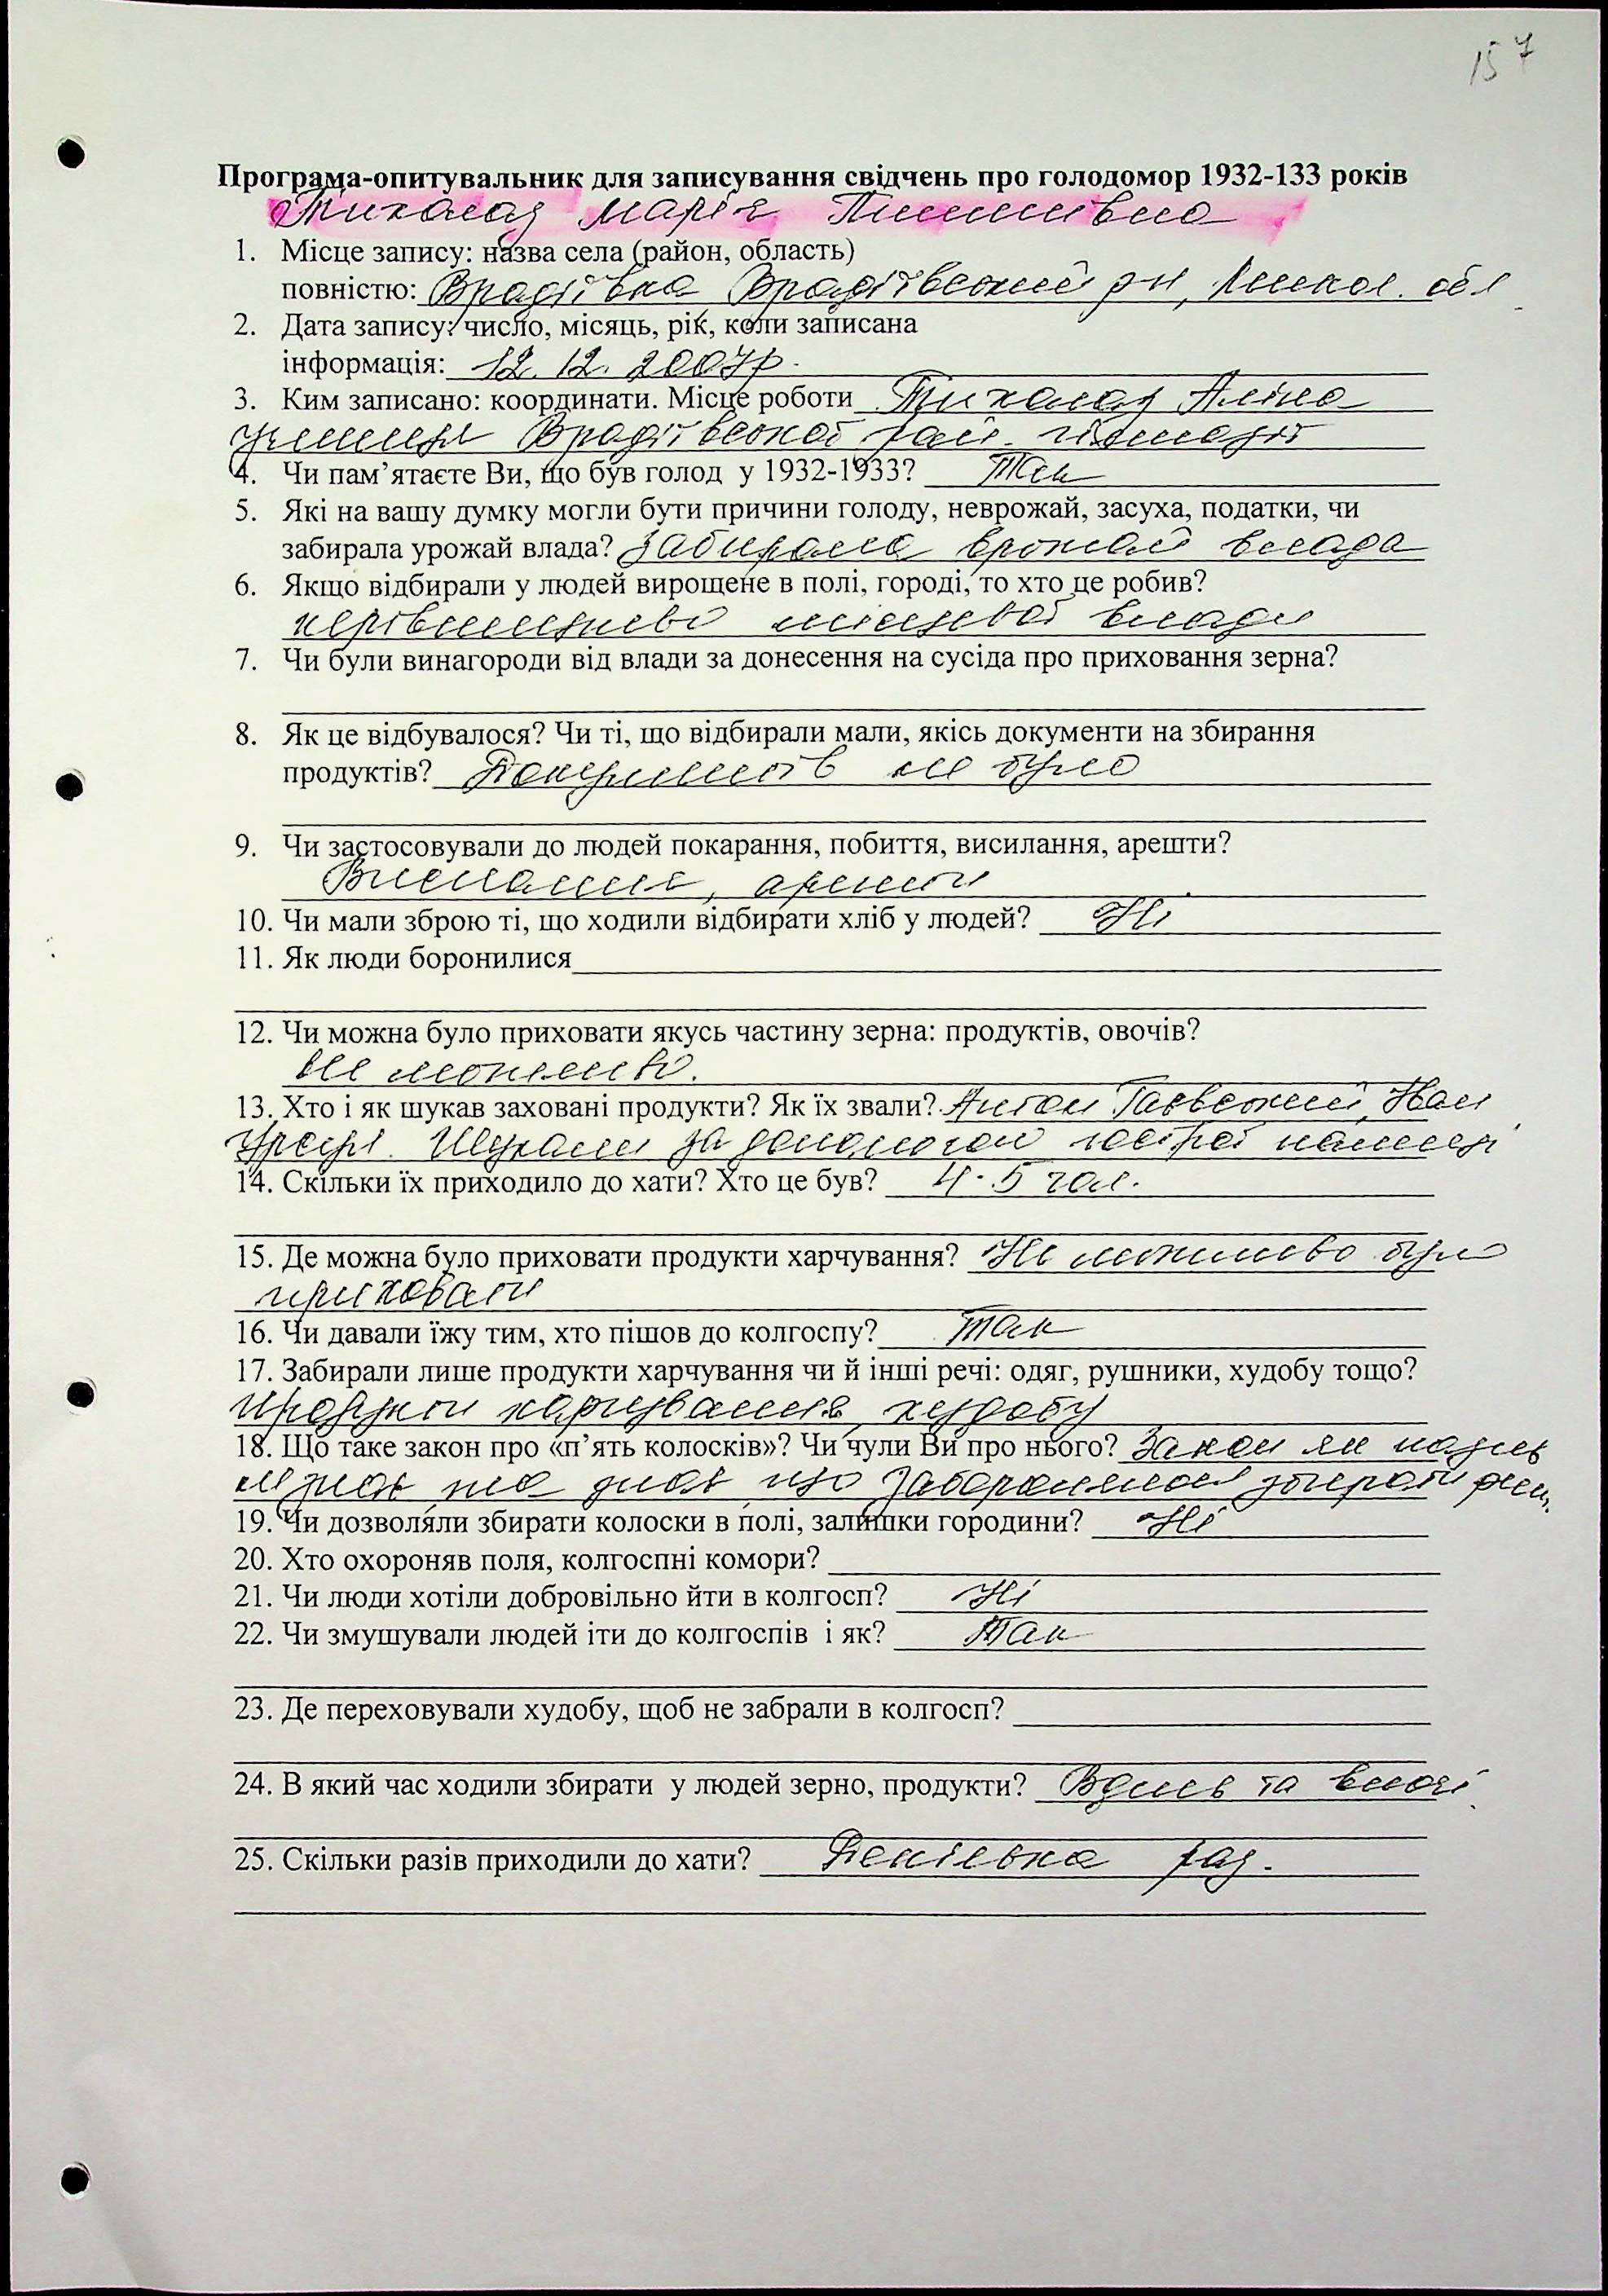 157
Програма-опитувальник для записування свідчень про голодомор 1932-133 років
Тихолаз Марія Пилипівна
1. Місце запису: назва села (район, область)
повністю: Врадіївка Врадіївський рн, Микол. обл
2. Дата запису: число, місяць, рік, коли записана
інформація: 12. 12. 2007р.
3. Ким записано: координати. Місце роботи Тихолаз Аліна
учениця Врадіївської рай. гімназії
4. Чи пам’ятаєте Ви, що був голод у 1932-1933? Так
5. Які на вашу думку могли бути причини голоду, неврожай, засуха, податки, чи
забирала урожай влада? Забирала врожай влада
6. Якщо відбирали у людей вирощене в полі, городі, то хто це робив?
керівництво місцевої влади
7. Чи були винагороди від влади за донесення на сусіда про приховання зерна?
8. Як це відбувалося? Чи ті, що відбирали мали, якісь документи на збирання
продуктів? Документів не було
9. Чи застосовували до людей покарання, побиття, висилання, арешти?
Висилання, арешти
10. Чи мали зброю ті, що ходили відбирати хліб у людей? Ні
11. Як люди боронилися
12. Чи можна було приховати якусь частину зерна: продуктів, овочів?
не можливо.
13. Хто і як шукав заховані продукти? Як їх звали? Антон Гаєвський, Іван
Шукали за допомогою гострої палиці
14. Скільки їх приходило до хати? Хто це був? 4-5 чол.
15. Де можна було приховати продукти харчування? Не можливо було
приховати
16. Чи давали їжу тим, хто пішов до колгоспу? Так
17. Забирали лише продукти харчування чи й інші речі: одяг, рушники, худобу тощо?
Продукти харчування, худобу
18. Що таке закон про «п’ять колосків»? Чи чули Ви про нього? Закон як
не знає та знає що заборонялося збирати
19. Чи дозволяли збирати колоски в полі, залишки городини? Ні
20. Хто охороняв поля, колгоспні комори?
21. Чи люди хотіли добровільно йти в колгосп? Ні
22. Чи змушували людей іти до колгоспів і як? Так
23. Де переховували худобу, щоб не забрали в колгосп?
24. В який час ходили збирати у людей зерно, продукти? Вдень та вночі
25. Скільки разів приходили до хати? Декілька раз.